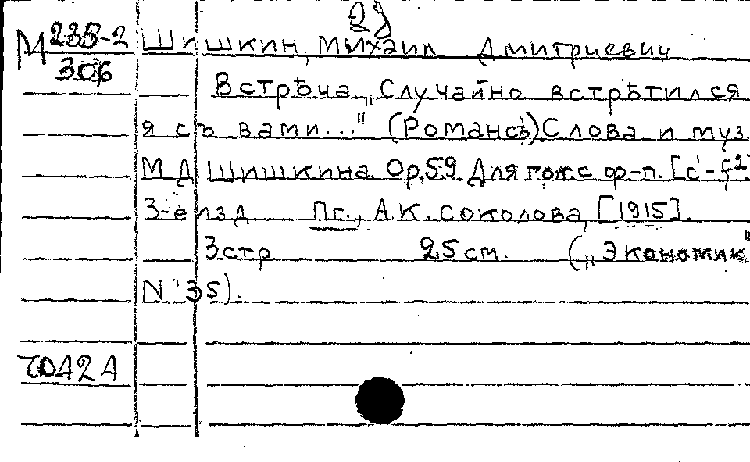 23
М 235-2
306
Шишкин, Михаил Дмитриевич
Встрѣча. „Случайно встрѣтился
я съ вами..." (Романсъ) Слова и муз
М.Д. Шишкина. Ор. 59. Для голоса с ф-п. [c-f²]
3-е изд Пг., А.К. Соколова, [1915].
3 стр 25 см. („Экономик"
N 35).
2А